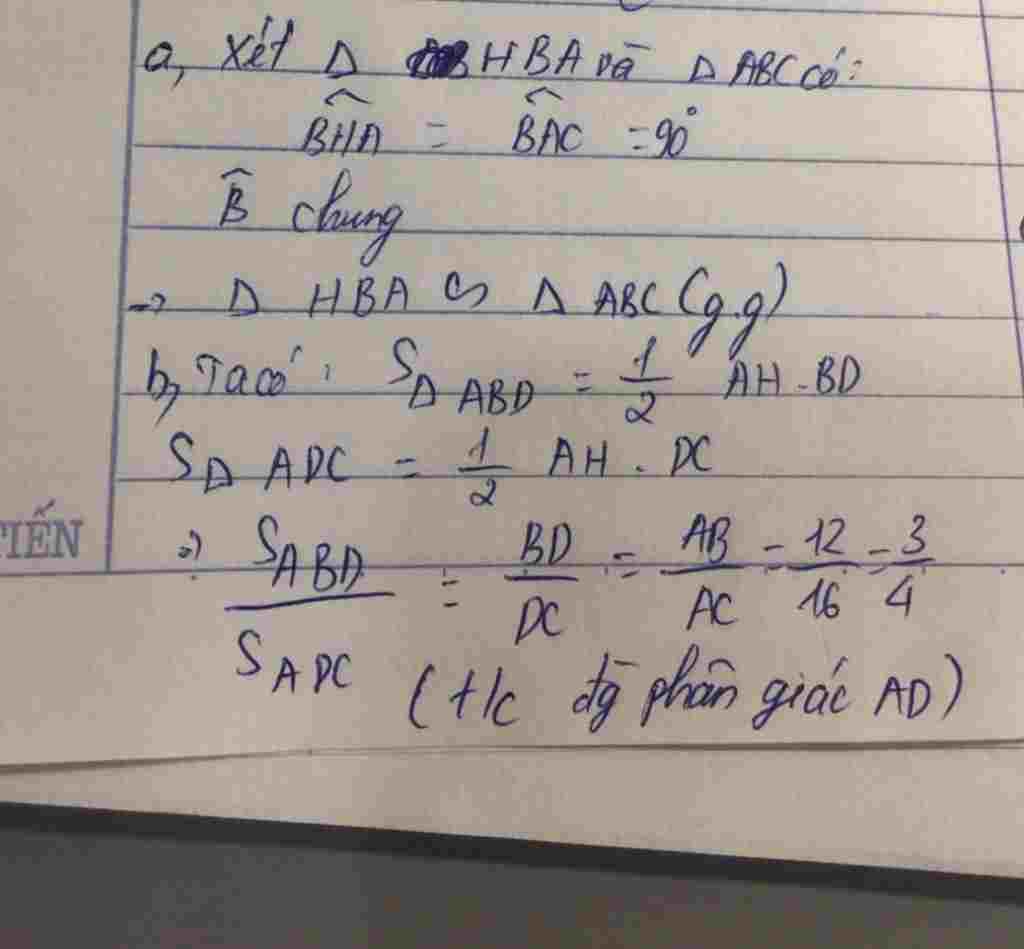 a, Xét Δ HBA và Δ ABC có:
$\widehat{BHA} = \widehat{BAC} = 90°$
$\widehat{B}$ chung
→ Δ HBA ∽ Δ ABC (g.g)
b, Ta có: $S_{Δ ABD} = \frac{1}{2}$ AH . BD
$S_{Δ ADC} = \frac{1}{2}$ AH . DC
TIẾN
⇒ $\frac{S_{ABD}}{S_{ADC}} = \frac{BD}{DC} = \frac{AB}{AC} = \frac{12}{16} = \frac{3}{4}$
(t/c đg phân giác AD)